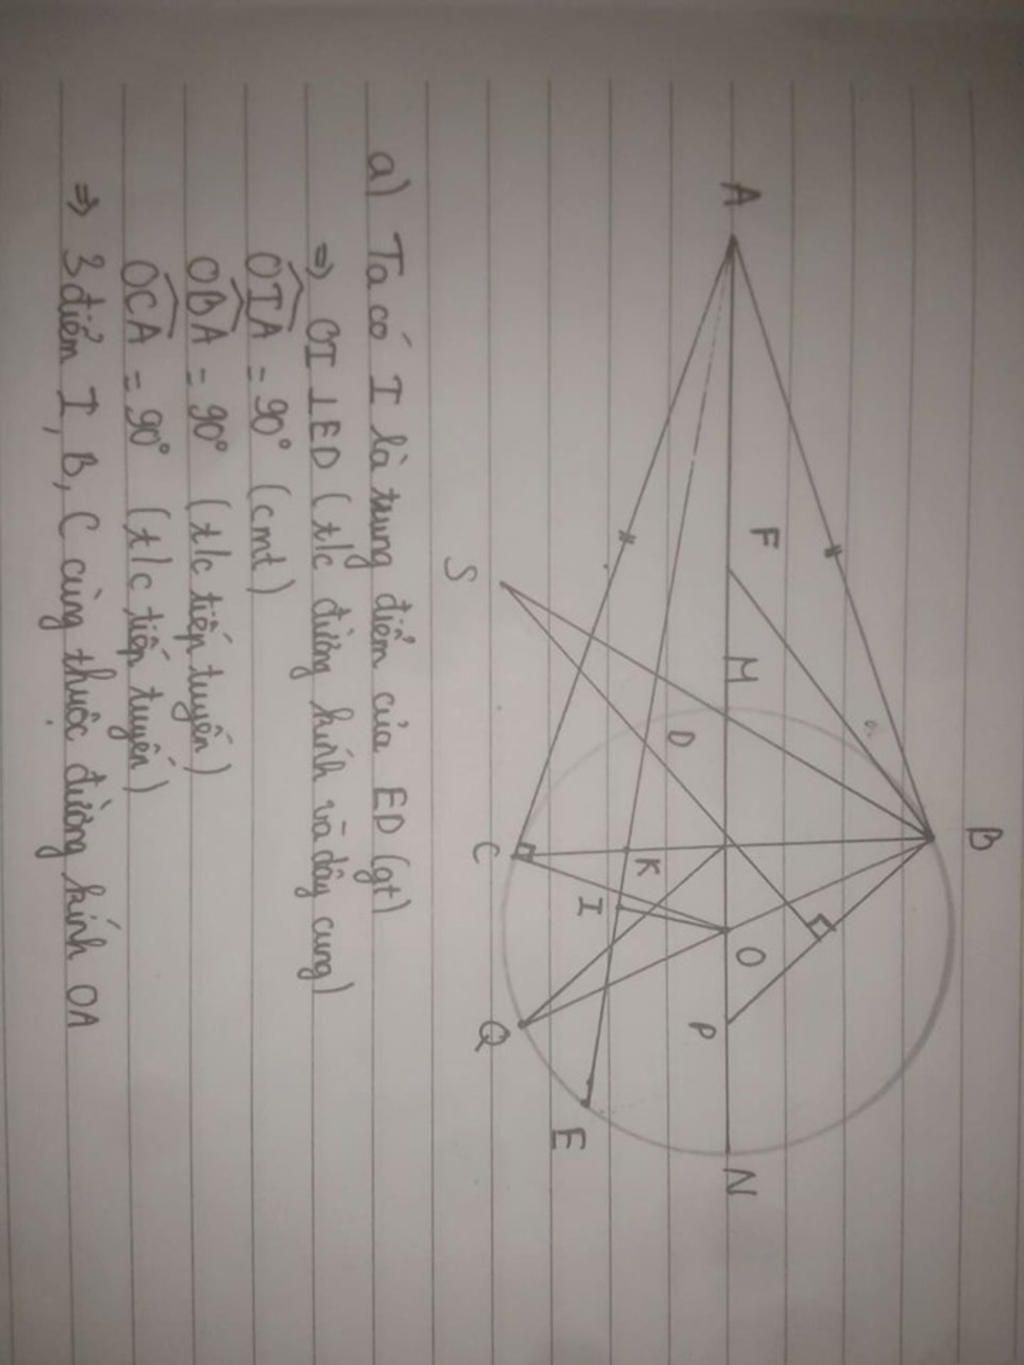 A
F
M
B
D
S
C
K
I
O
P
Q
E
N
a) Ta có I là trung điểm của ED (gt)
⇒ OI ⊥ ED (t/c đường kính và dây cung)
OIA = 90° (cmt)
OBA = 90° (t/c tiếp tuyến)
OCA = 90° (t/c tiếp tuyến)
⇒ 3 điểm I, B, C cùng thuộc đường kính OA